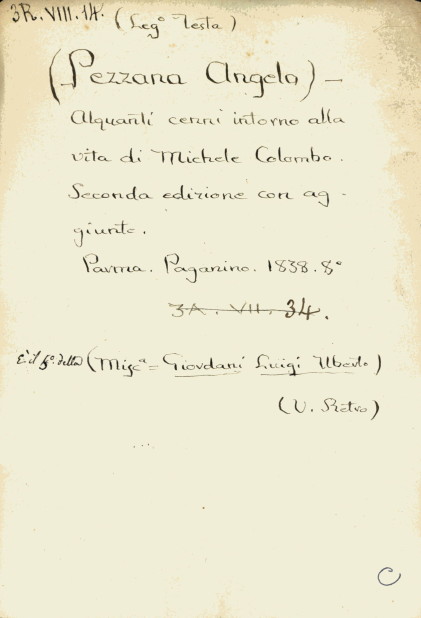 3R. VIII. 14. (Leg.° Testa)
(Pezzana Angelo) —
Alquanti cenni intorno alla
vita di Michele Colombo.
Seconda edizione con ag-
giunte.
Parma. Paganino. 1838. 8°
3A. VII. 34.
È il 5°. della (Misc.ª = Giordani Luigi Uberto)
(V. Retro)
C